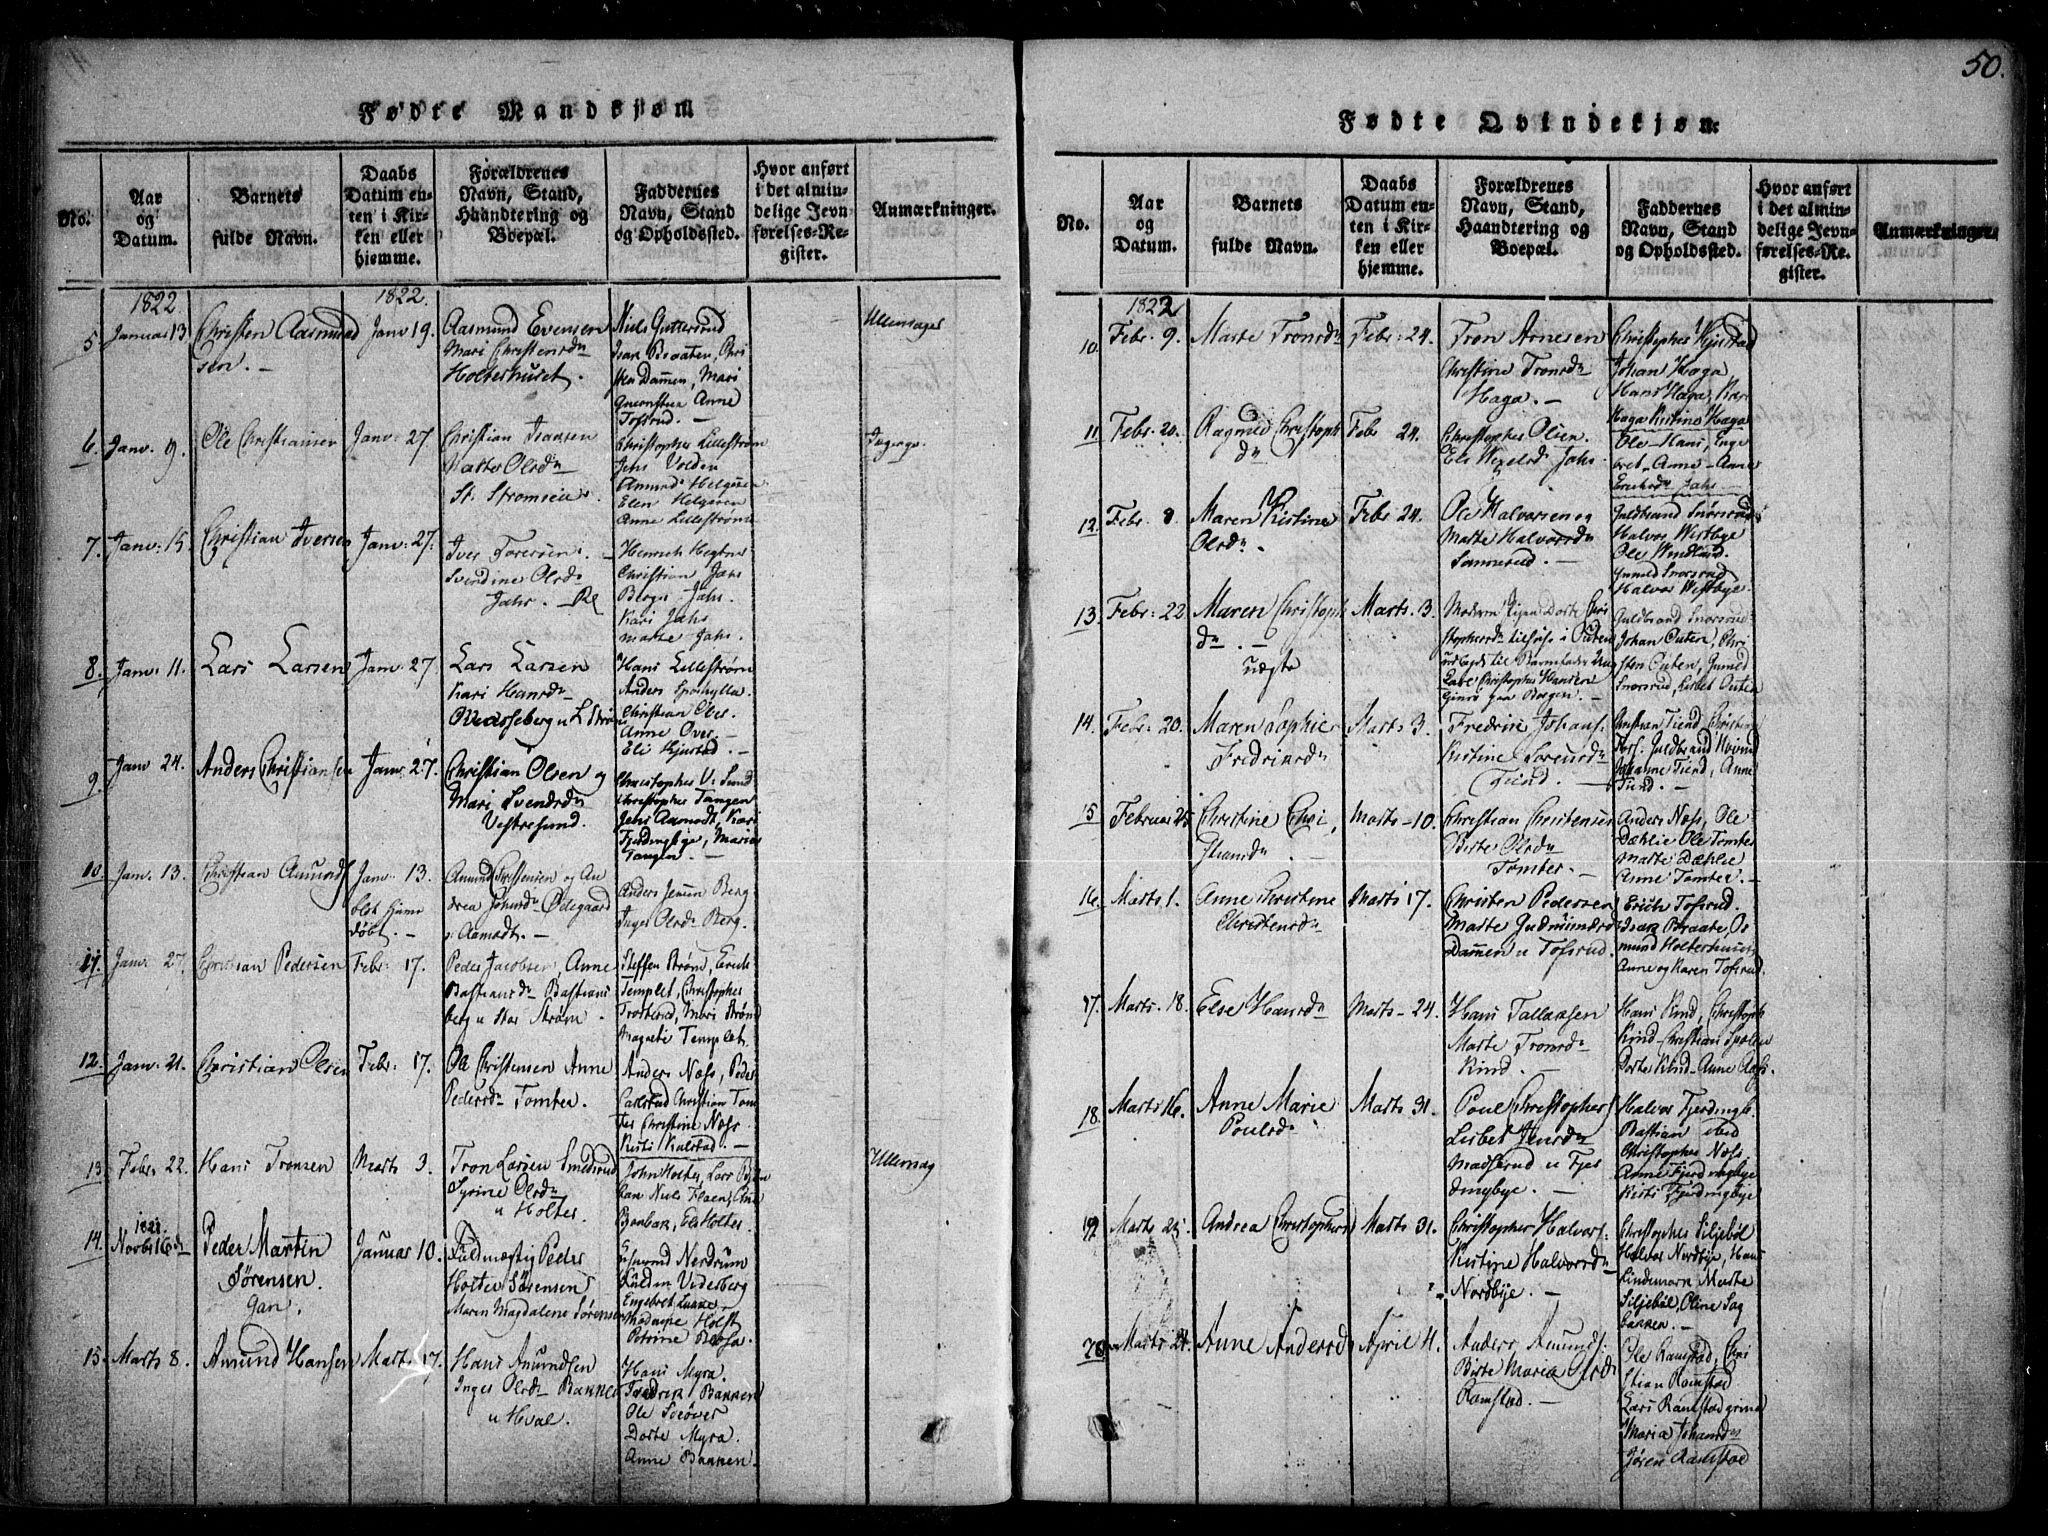 50.
Fødte Mandskjøn
No.
Aar
og
Datum.
Barnets
fulde Navn.
Daabs
Datum en-
ten i Kir-
ken eller
hjemme.
Forældrenes
Navn, Stand,
Haandtering og
Boepæl.
Faddernes
Navn, Stand
og Opholdssted.
Hvor anført
i det almin-
delige Jevn-
førelses-Re-
gister.
Anmærkninger.
1822
1822.
5.
Januar 13
Christen Aasmund
sen. -
Janv 19.
Aasmund Evensen
Mari Christensdr
Holterhuset.
Niels Guttersrud
Isak Braaten, Chri
sten Dammen, Mari
Anne
Tofsrud. -
Ullensager
6.
Janv. 9.
Ole Christiansen
Janv: 27.
Christian Isaksen
Marte Olsdr
St. Strømmen.
Christopher Lillestrøm
Jens Volden
Amund Helgesen
Elen Helgesen
Anne Lillestrøm
7.
Janv: 15.
Christian Iversen
Janv: 27.
Iver Toresen.
Svendine Olsdr
Jahr. -
Henrich Hegtne
Christian Jahr
Berger Jahr.
Kari Jahr
Marte Jahr.
8.
Janv: 11.
Lars Larsen
Janv: 27.
Lars Larsen
Kari Hansdr
Hans Lillestrøm
Anders
Christian Over.
Anne Over. -
Eli Kjustad. -
9
Janv 24.
Anders Christiansen
Janv: 27.
Christian Olsen og
Mari Svendsdr
Vestresund.
Christopher V. Sund
Christopher Tangen
Jens Aamodt, Kari
Fjerdingbye, Maria
Tangen. -
10
Janv. 13.
Christian Amunds
Janv: 13.
blot hjeme
døbt. -
Amund Christensen og An
drea Johnsdr Ødegaard
v. Aamodt. -
Anders Jensen Berg
Inger Olsdr Berg.
11.
Janv: 27.
Christian Pedersen
Febr: 17.
Peder Jacobsen, Anne
Bastiansdr Bastians
berg u Stor Strøm.
Steffen Strøm, Erich
Templet, Christopher
Trosterud, Mari Strøm
Magnete Templet.
12.
Janv: 21.
Christian Olsen
Febr: 17.
Ole Christensen Anne
Pedersdr Tomter.
Anders Næss, Peder
Carlsrud Christian Tom
ter Christine Næss.
Kirsti Kalstad. -
13
Febr: 22.
Hans Tronsen
Marts 3.
Tron Larsen Smedsrud
Syrine Olsdr
u Holter.
John Holter, Lars
Niels
Els Holter.
Ullensag
14.
Novbr 16de
Peder Martin
Sørensen.
Gan.
Januar 10.
Fuldmægtig Peder
Holter Sørensen
Maren Magdalene Sørensen
Nerdrum
Viderberg
Engebret
Madame Holst
Petrine
15.
Marts 8.
Amund Hansen
Marts 17.
Hans Amundsen
Inger Olsdr Bakken
u Hval.
Hans Myra.
Fredrik Bakken
Ole
Dorte Myra.
Anne Bakken.
Fødte Qvindekjøn.
No.
Aar
og
Datum.
Barnets
fulde Navn.
Daabs
Datum en-
ten i Kir-
ken eller
hjemme.
Forældrenes
Navn, Stand,
Haandtering og
Boepæl.
Faddernes
Navn, Stand
og Opholdssted.
Hvor anført
i det almin-
delige Jevn-
førelses-Re-
gister.
Anmærkninger.
1822
10.
Febr. 9.
Marte Tronsdr
Febr: 24.
Tron Arnesen
Christine Tronsdr
Haga. -
Christopher Kjustad
Johan Haga,
Hans Haga, Kari
Haga Kistine Haga
11.
Febr. 20.
Ragnild Christoph
dr
Febr 24.
Christopher Olsen.
Jahr
Ole - Hans, Enge
bret - Anne - Anne
Jahr -
12.
Febr. 8.
Maren Kistine
Olsdr. -
Febr. 24.
Ole Halvorsen og
Marte Halvorsdr
Sannerud. -
Guldbrand Snorsrud
Halvor Westbye
Ole Windlund.
Gunild Snorsrud
Halvor Westbye.
13.
Febr: 22
Maren Christoph
dr. -
uægte
Marts. 3
Moderen Pigen Dorte Chri
stophersdr tilhuse i Outen
udlagt til Barnefader Un
Karl Christopher Hansen
paa Borgen. -
Guldbrand Snorsrud
Johan Outen, Chri
sten Outen, Gunild
Snorsrud, Lisbet Outen
14.
Febr: 20.
Maren Sophie
Fredriksdr
Marts 3.
Fredrik Johans.
Kistine Sorensdr
Tiend. -
Christian Tiend, Christian
Guldbrand
Johanne Tiend, Anne
Tiend. -
15
Februar 25
Christine Chri
stiansdr. -
Marts - 10.
Christian Christensen
Birte Olsdr
Tomter. -
Anders Næss, Ole
Dæhlie Ole Tomter
Marte Dæhlie
Anne Tomter. -
16.
Marts 1.
Anne Christine
Christensdr
Marts 17.
Christen Pedersen
Marte Gudmundsd
Dammen u Tofsrud.
Erich Tofsrud.
Isak Braate, Os
mund Holterhuset,
Anne og Karen Tofsrud.
17.
Marts. 18.
Else Hansdr
Marts - 24.
Hans Tallaksen
Marte Tronsdr
Kind. -
Hans Kind, Christoph
Kind - Christian Spolen
Dorte Kind - Anne Aas.
18.
Marts 16.
Anne Marie
Poulsdr
Marts 31.
Poul Christophers
Lisbet Jensdr
Madserud u Fjer
dingbye. -
Halvor Fjerdingb.
Bastian ibid
Christopher Næss,
Anne Fjerdingbye
Kirsti Fjerdingbye
19.
Marts 25.
Andrea Christophersd
Marts 31.
Christopher Halvors.
Kistine Halvorsdr
Nordbye. -
Christopher Siljebøl
Halvor Nordbye, Hans
Lindemark Marte
Siljebøl, Oline Sag
bakken. -
20.
Marts 24.
Anne Andersd
April 4.
Anders Amunds:
Birte Maria Olsdr
Ramstad. -
Ole Ramstad, Chri
stian Ramstad
Lars Ramstad
Maria Johansdr
Jøren Ramstad